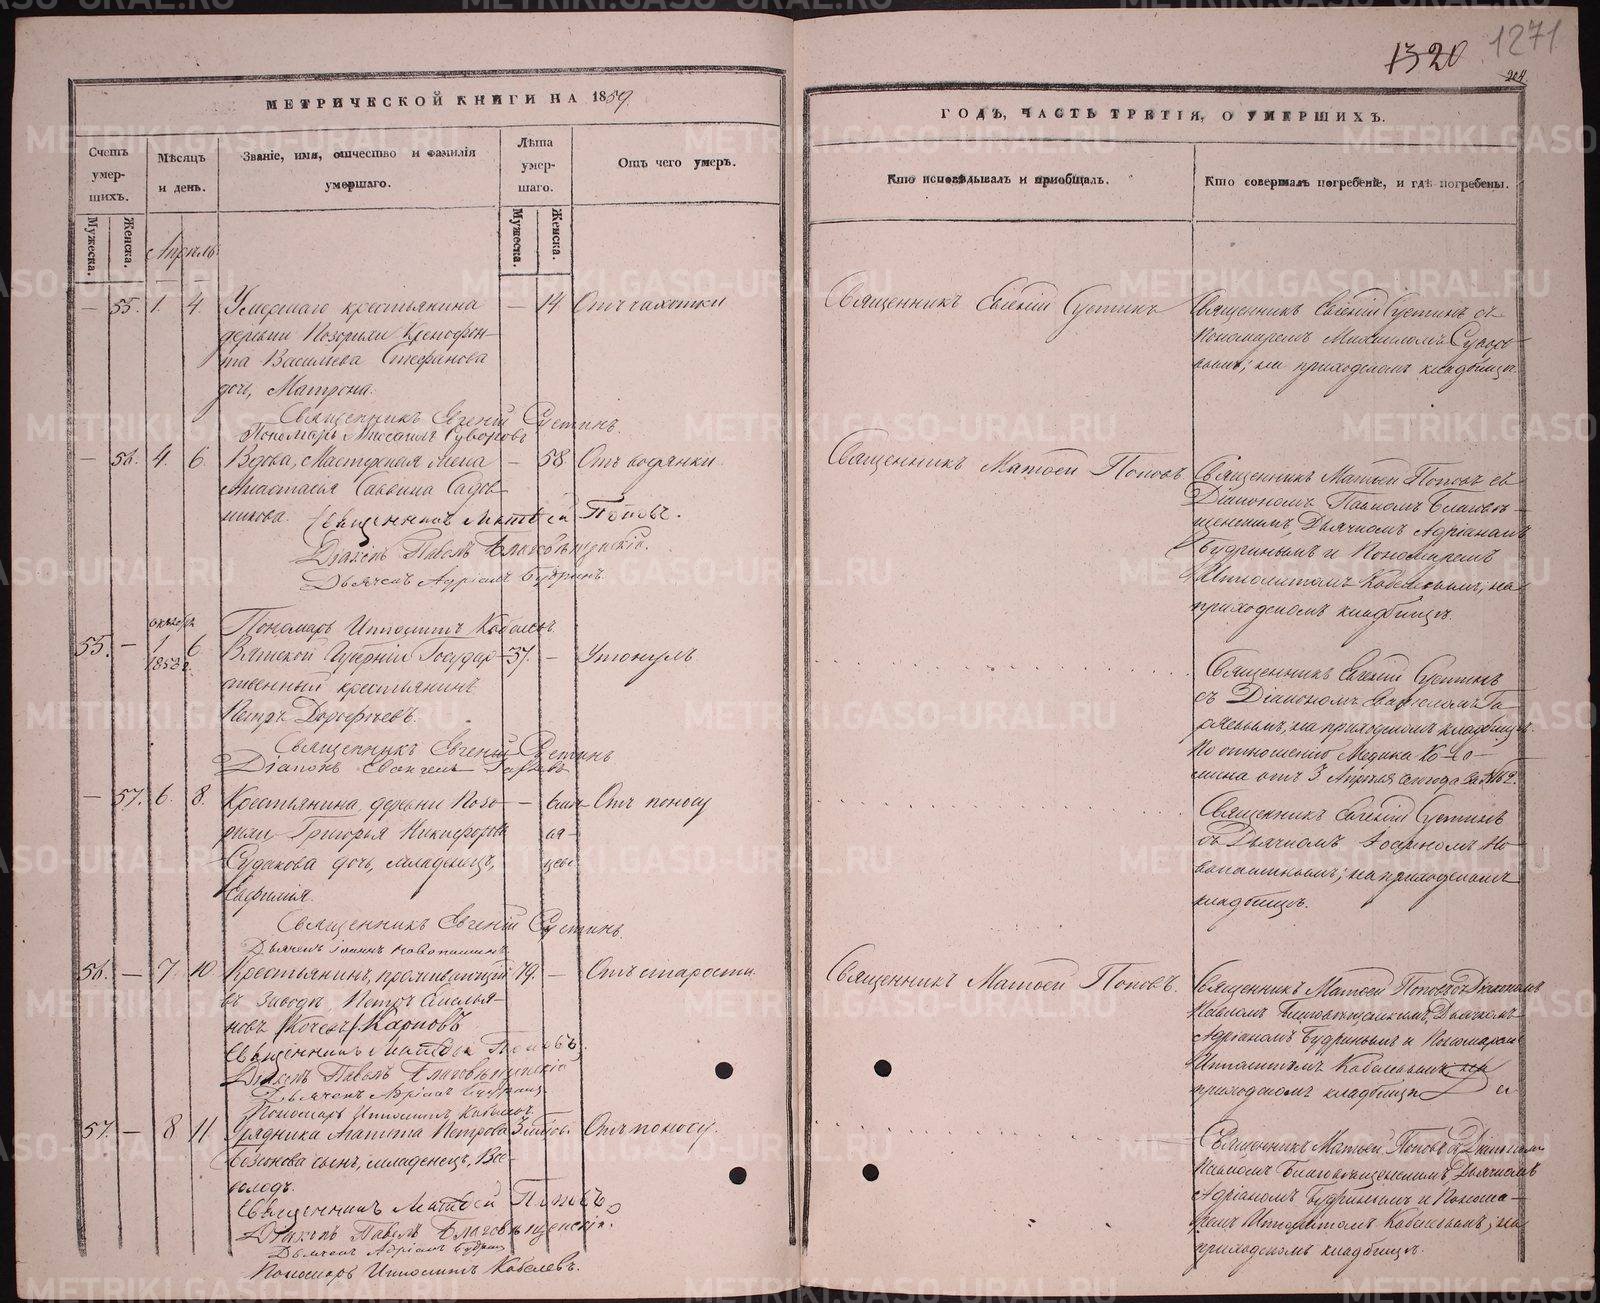 1320 1271
204.
МЕТРИЧЕСКОЙ КНИГИ НА 1859
ГОДЪ, ЧАСТЬ ТРЕТІЯ, О УМЕРШИХЪ.
Счетъ умер-
шихъ.
Мужеска.
Женска.
Мѣсяцъ
и день.
Званіе, имя, отчество и фамилія
умершаго.
Лѣта
умер-
шаго.
Мужеска.
Женска.
Отъ чего умеръ.
Кто исповѣдывалъ и приобщалъ.
Кто совершалъ погребеніе, и гдѣ погребены.
Апрѣль
— 55. 1. 4.
Умершаго крестьянина
деревни Позорихи Ксенофон-
та Васильева Стефанова
дочь, Матрона.
— 14 Отъ чахотки
Священникъ Евгеній Сустинъ
Священникъ Евгеній Сустинъ съ
Пономаремъ Михаиломъ Суворо-
вымъ; на приходскомъ кладбищѣ.
Священникъ Евгеній Сустинъ.
Пономарь Михаилъ Суворовъ
— 56. 4. 6.
Вдова, Мастерская Жена
Анастасья Саввина Садов-
никова.
— 58. Отъ водянки.
Священникъ Матвей Поповъ
Священникъ Матвей Поповъ съ
Діакономъ Павломъ Благовѣ-
щенскимъ, Дьячкомъ Адріаномъ
Будринымъ и Пономаремъ
Ипполитомъ Кобелевымъ, на
приходскомъ кладбищѣ.
Священникъ Матвей Поповъ.
Діаконъ Павелъ Благовѣщенскій.
Дьячекъ Адріанъ Будринъ.
Пономарь Ипполитъ Кобелевъ.
октября
55. — 1 6
1858 г.
Вятской Губерніи Государ-
ственный крестьянинъ
Петръ Дорофѣевъ.
37. — Утонулъ
Священникъ Евгеній Сустинъ
съ Діакономъ
на приходскомъ кладбищѣ.
По отношенію Медика
от 3 Апрѣля сего года за №
Священникъ Евгеній Сустинъ
Діаконъ
— 57. 6. 8.
Крестьянина деревни Позо-
рихи Григорья Никифорова
Судакова дочь, младенецъ,
Евфимія.
— Отъ поносу
Священникъ Евгеній Сустинъ
съ Дьячкомъ Іоанномъ Но-
вопашинымъ; на приходскомъ
кладбищѣ.
Священникъ Евгеній Сустинъ.
Дьячекъ Іоаннъ Новопашинъ
56. — 7. 10.
Крестьянинъ,
въ заводѣ Петръ Емелья-
новъ (Кочевъ) Карповъ
79. — Отъ старости.
Священникъ Матвей Поповъ.
Священникъ Матвей Поповъ съ Діакономъ
Павломъ Благовѣщенскимъ, Дьячкомъ
Адріаномъ Будринымъ и Пономаремъ
Ипполитомъ Кобелевымъ, на
приходскомъ кладбищѣ
Священникъ Матвей Поповъ,
Діаконъ Павелъ Благовѣщенскій
Дьячекъ Адріанъ Будринъ
Пономарь Ипполитъ Кобелевъ.
57. — 8 11
Урядника Петрова
сынъ, младенецъ, Все-
володъ.
Отъ поносу.
Священникъ Матвей Поповъ съ Діакономъ
Павломъ Благовѣщенскимъ, Дьячкомъ
Адріаномъ Будринымъ и Понома-
ремъ Ипполитомъ Кобелевымъ; на
приходскомъ кладбищѣ.
Священникъ Матвей Поповъ,
Діаконъ Павелъ Благовѣщенскій.
Дьячекъ Адріанъ Будринъ
Пономарь Ипполитъ Кобелевъ.
METRIKI.GASO-URAL.RU